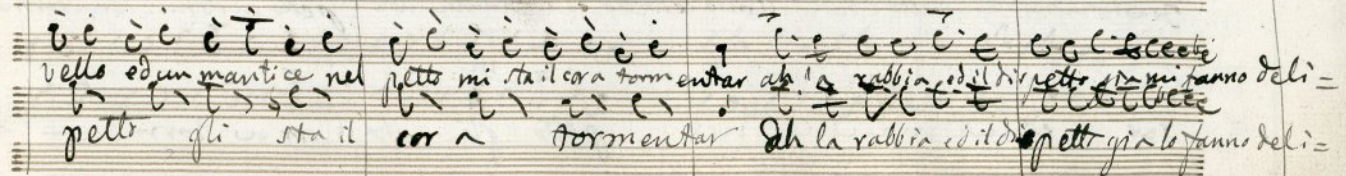 vello ed un mantice nel petto mi sta il cor a tormentar ah la rabbia ed il dispetto gia mi fanno deli=
petto gli sta il cor a tormentar ah la rabbia ed il dispetto gia lo fanno deli=